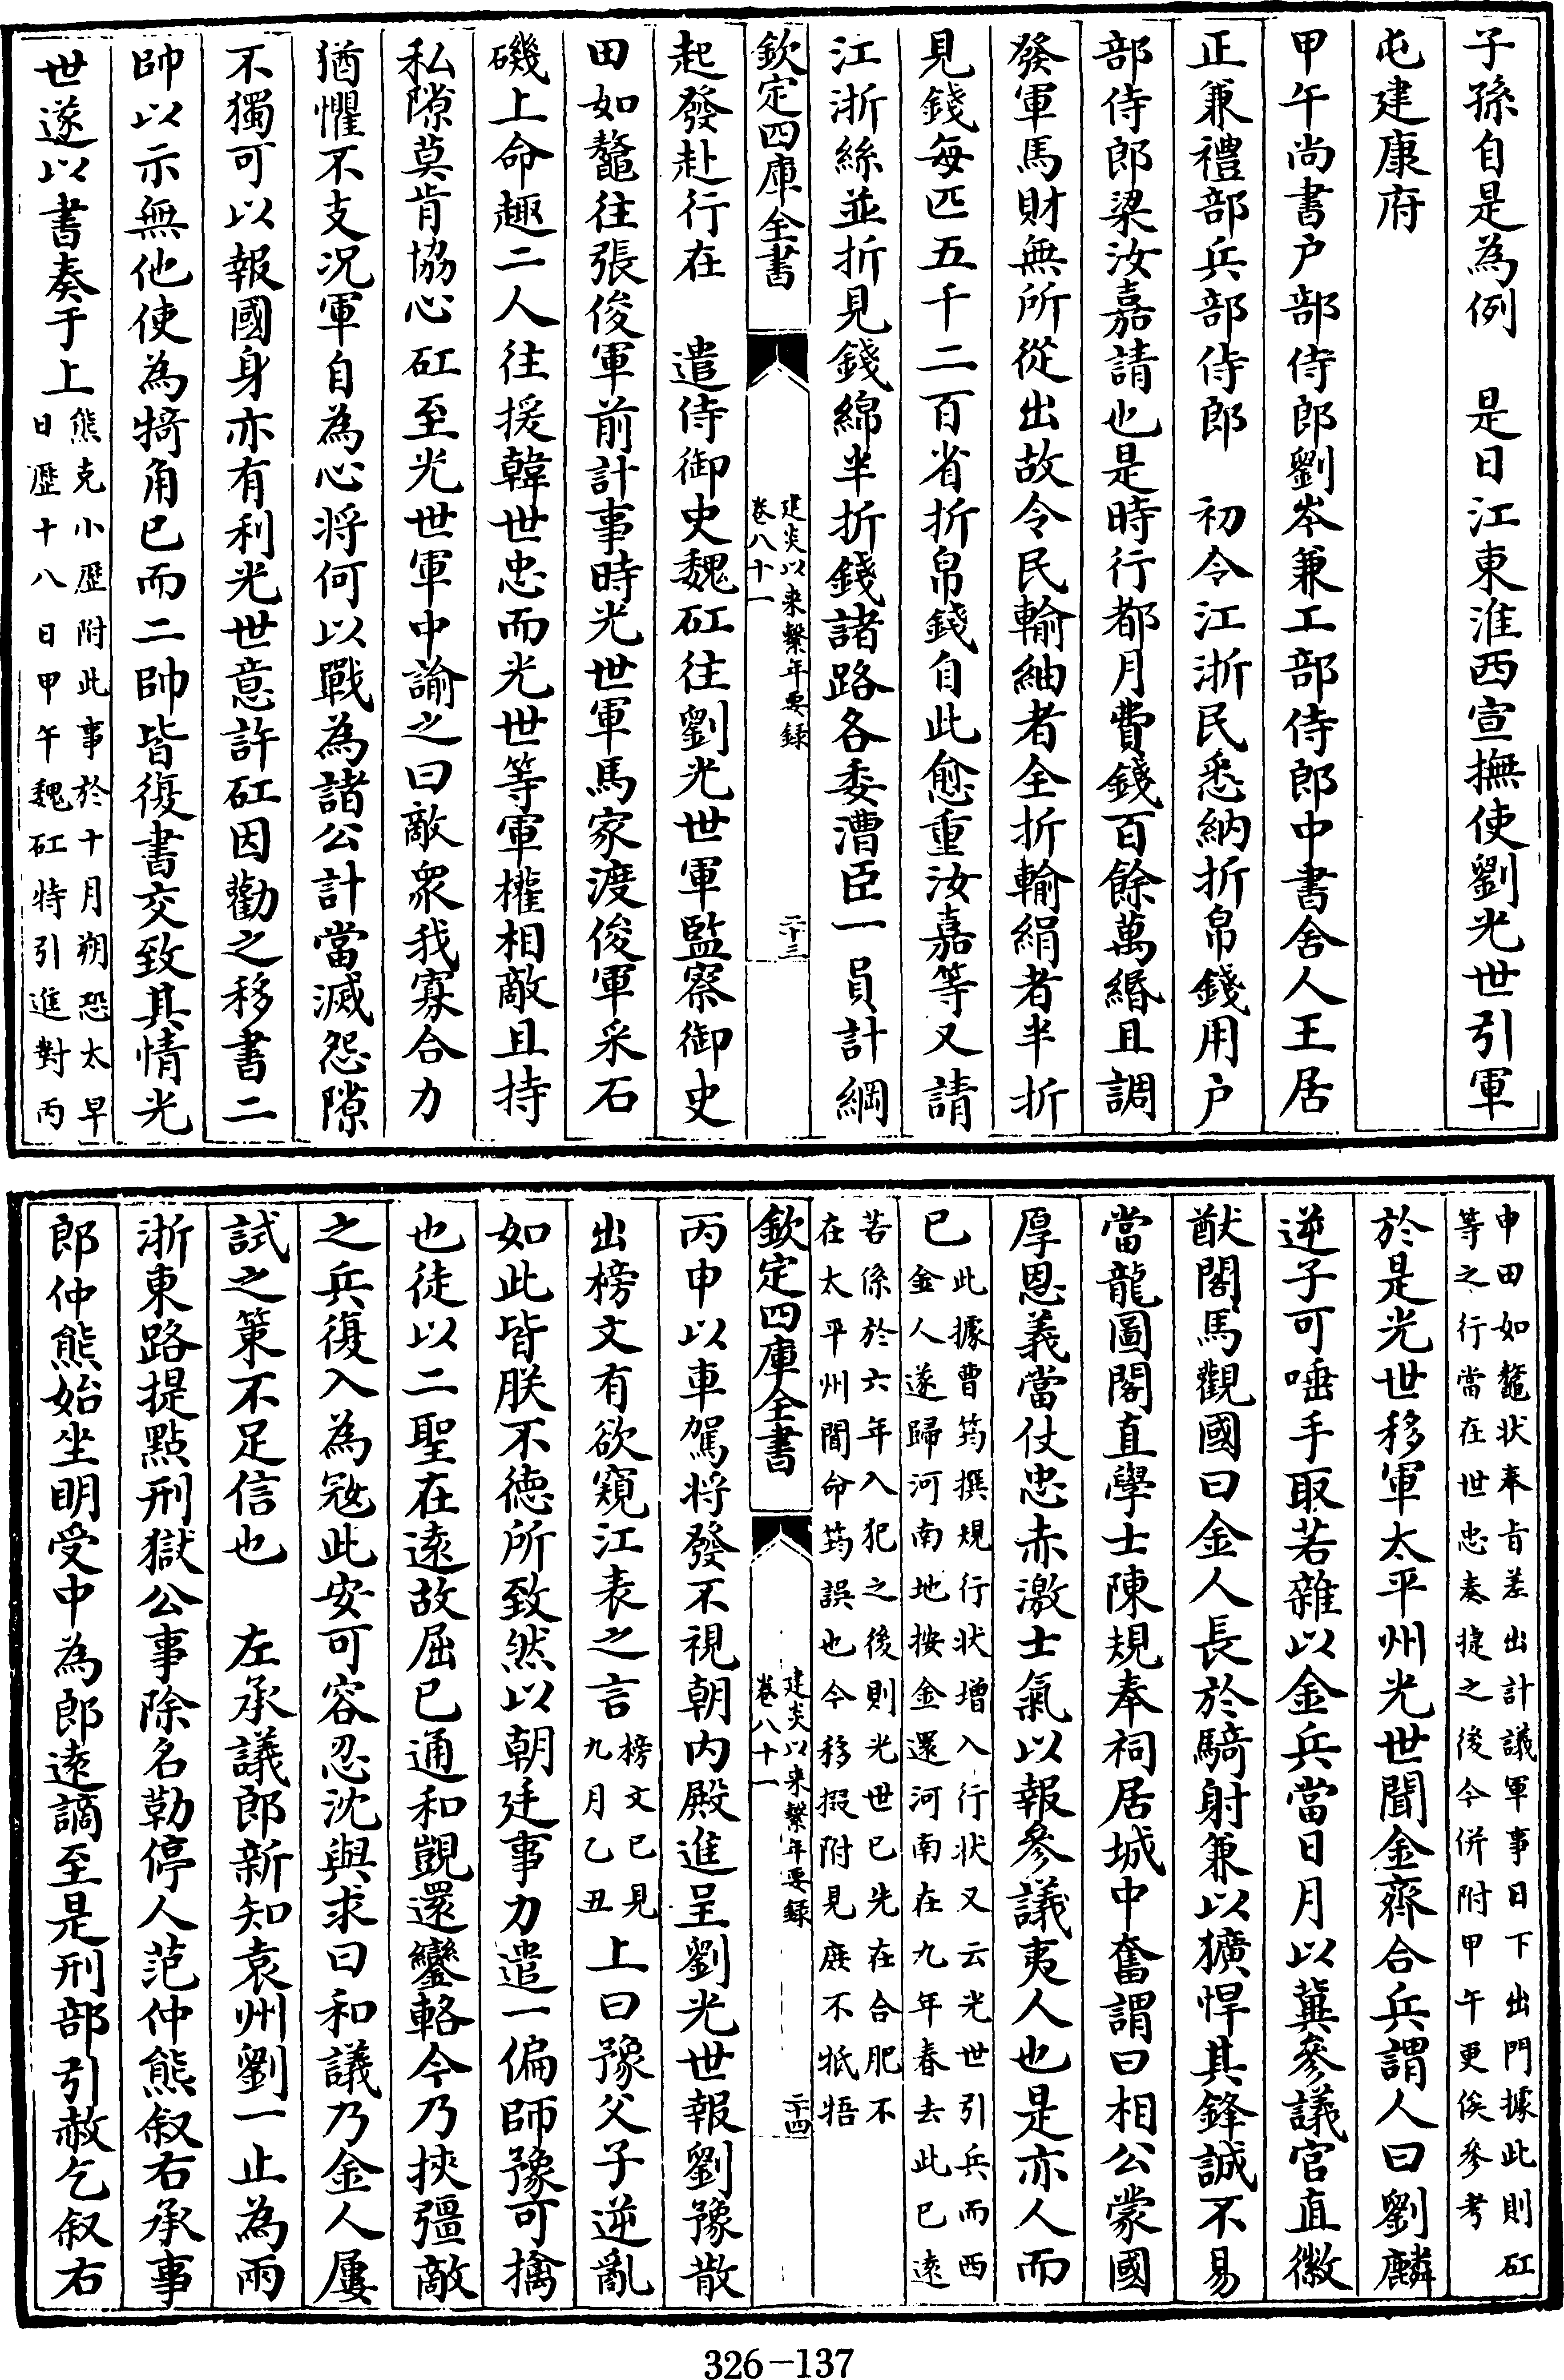 子孫自是為例　是日江東淮西宣撫使劉光世引軍
屯建康府
甲午尚書户部侍郎劉岑兼工部侍郎中書舍人王居
正兼禮部兵部侍郎　初令江浙民悉納折帛錢用户
部侍郎梁汝嘉請也是時行都月費錢百餘萬緡且調
發軍馬財無所從出故令民輸紬者全折輸絹者半折
見錢每匹五千二百省折帛錢自此愈重汝嘉等又請
江浙絲並折見錢綿半折錢諸路各委漕臣一員計綱
欽定四庫全書
建炎以来繫年要録
卷八十一
二十三
起發赴行在　遣侍御史魏矼往劉光世軍監察御史
田如鼇往張俊軍前計事時光世軍馬家渡俊軍采石
磯上命趣二人往援韓世忠而光世等軍權相敵且持
私隙莫肯協心矼至光世軍中諭之曰敵衆我寡合力
猶懼不支况軍自為心将何以戰為諸公計當滅怨隙
不獨可以報國身亦有利光世意許矼因勸之移書二
帥以示無他使為犄角已而二帥皆復書交致其情光
世遂以書奏于上
熊克小歴附此事於十月朔恐太早
日歴十八日甲午魏矼特引進對丙
申田如鼇状奉旨差出計議軍事日下出門據此則矼
等之行當在世忠奏捷之後今併附甲午更俟參考
於是光世移軍太平州光世聞金齊合兵謂人曰劉麟
逆子可唾手取若雜以金兵當日月以冀參議官直徽
猷閣馬觀國曰金人長於騎射兼以獷悍其鋒誠不易
當龍圖閣直學士陳規奉祠居城中奮謂曰相公蒙國
厚恩義當仗忠赤激士氣以報參議夷人也是亦人而
已
此據曹筠撰規行状增入行状又云光世引兵而西
金人遂歸河南地按金還河南在九年春去此已遠
若係於六年入犯之後則光世已先在合肥不
在太平州聞命筠誤也今移掇附見庶不牴牾
欽定四庫全書
建炎以来繫年要録
卷八十一
二十四
丙申以車駕将發不視朝内殿進呈劉光世報劉豫散
出榜文有欲窺江表之言
榜文已見
九月乙丑
上曰豫父子逆亂
如此皆朕不徳所致然以朝廷事力遣一偏師豫可擒
也徒以二聖在遠故屈已通和覬還鑾輅今乃挾彊敵
之兵復入為冦此安可容忍沈與求曰和議乃金人屢
試之策不足信也　左承議郎新知袁州劉一止為兩
浙東路提點刑獄公事除名勒停人范仲熊叙右承事
郎仲熊始坐明受中為郎遠謫至是刑部引赦乞叙右
326-137